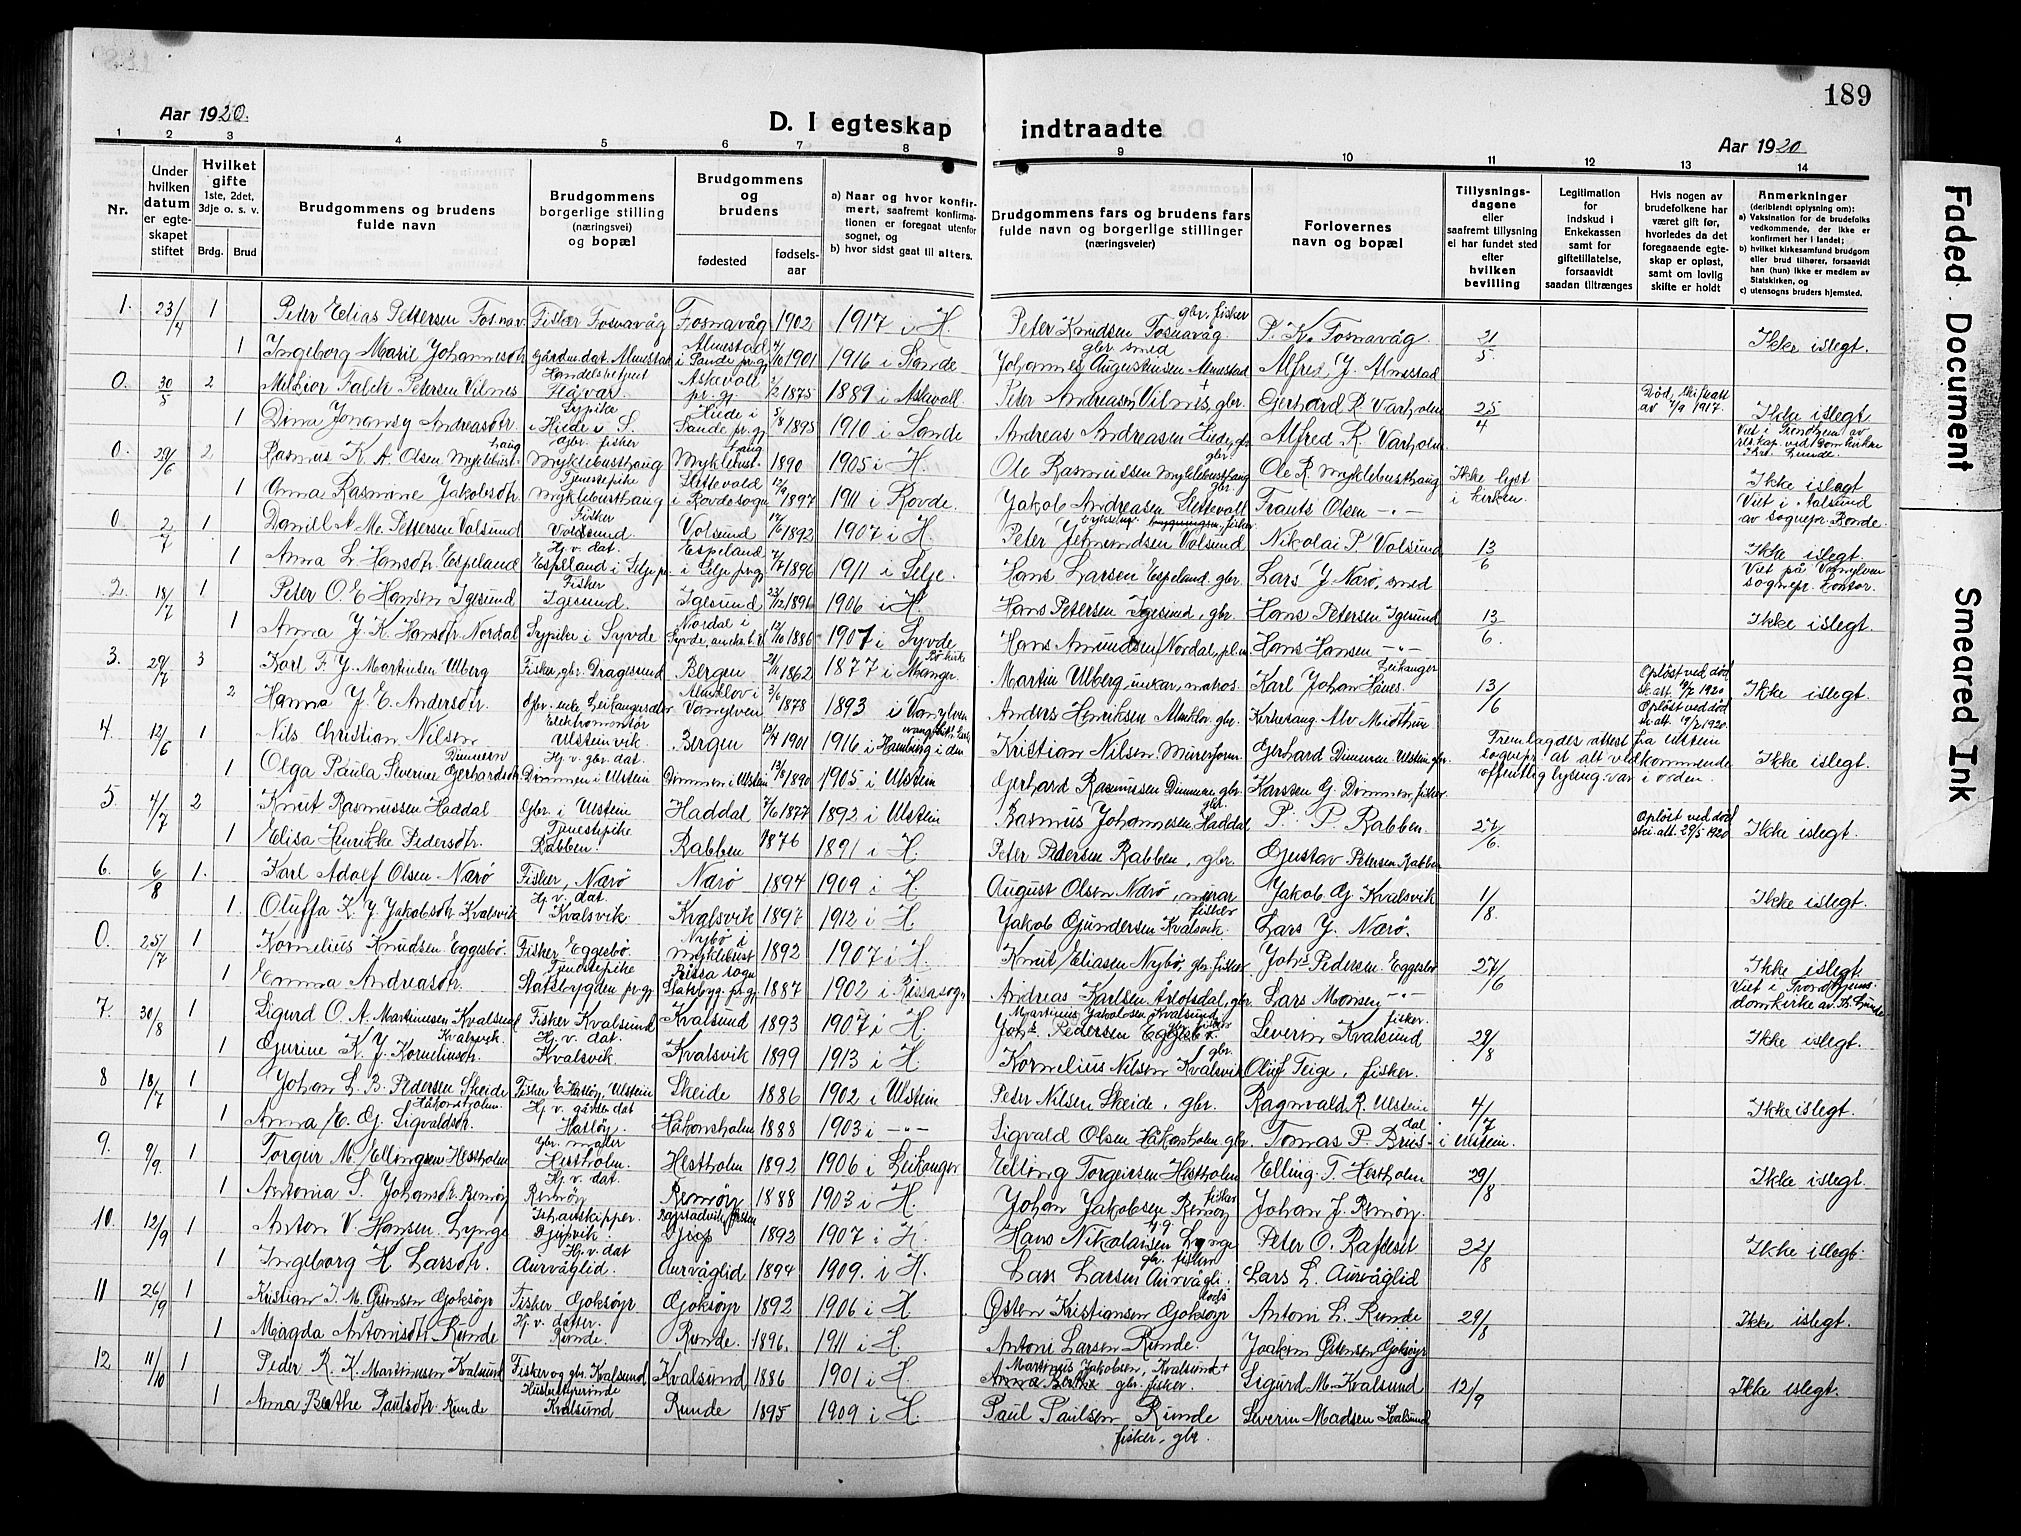 189
Aar 1920.
D. I egteskap indtraadte
Aar 1920
1 2 3 4 5 6 7 8 9 10 11 12 13 14
Nr.
Under hvilken datum er egteskapet stiftet
Hvilket gifte 1ste, 2det, 3dje o. s. v.
Brdg. Brud
Brudgommens og brudens fulde navn
Brudgommens borgerlige stilling (næringsvei) og bopæl
Brudgommens og brudens
fødested
fødsels-aar
a) Naar og hvor konfirmert, saafremt konfirmationen er foregaat utenfor sognet, og
b) hvor sidst gaat til alters.
Brudgommens fars og brudens fars fulde navn og borgerlige stillinger (næringsveier)
Forlovernes navn og bopæl
Tillysningsdagene eller saafremt tillysning ei har fundet sted efter hvilken bevilling
Legitimation for Indskud i Enkekassen samt for giftetillatelse, forsaavidt saadan tiltrænges
Hvis nogen av brudefolkene har været gift før, hvorledes da det foregaaende egteskap er opløst, samt om lovlig skifte er holdt
Anmerkninger (deriblandt oplysning om):
a) Vaksination for de brudefolks vedkommende, der ikke er konfirmert her i landet;
b) hvilket kirkesamfund brudgom eller brud tilhører, forsaavidt han (hun) ikke er medlem av Statskirken, og
c) utensogns bruders hjemsted.
1. 23/4 1 Peter Elias Pettersen Fosnav. Fisker Fosnavåg Fosnavåg 1902 1917 i H Peter Knudsen Fosnavåg gbr. fisker P. K. Fosnavåg 21/5 Ikke i slegt.
1 Ingeborg Marie Johannesdtr Gårdm. dat. Almestad Almestad i Sande pr.gj 1901 1916 i Sande Johannes Augustinsen Almestad gbr. smed Alfred J. Almestad
0. 30/5 2 Melkior Falch Petersen Vilnes Handelsbetjent Håvar Askevoll pr. gj. 1875 1889 i Askvoll Peter Andreasen Vilnes, gbr. Gerhard R Varholm 25/4 Død, skifteatt av 7/9 1917. Ikke i slegt
1 Dina Jonomy Andreasdtr Sypike Hide i S. Hide i Sande pr.gj 5/8 1895 1910 i Sande Andreas Andreasen Hide, gbr Alfred R. Varholm Viet i Trondhjem av res. kap. ved Domkirken Chr. Lunde.
0. 29/6 2 Rasmus K. A. Olsen Myklebusthaug Gbr. fisker Myklebusthaug Myklebusthaug 1890 1905 i H. Ole Rasmussen Myklebusthaug gbr. Ole R Myklebusthaug Ikke lyst i kirken. Ikke i slegt
1 Anna Rasmine Jakobsdtr. Tjenestepike Myklebusthaug Slettevold i Rovde sogn 12/9 1897 1911 i Rovde. Jakob Andreasen Slettevoll gbr. Frants Olsen -"- Viet i Aalesund av sognepr. Ronde.
0. 2/7 1 Daniel A. M. Pettersen Volsund Fisker Volsund. Volsund 17/6 1892 1907 i H. Peter Jetmundsen Volsund fisker Nikolai P Volsund 13/6 Ikke i slegt.
1 Anna L. Hansdtr. Espeland Hj. v. dat. Espeland i Selje pr. Espeland i Selje pr.gj. 7/7 1896 1911 i Selje. Hans Larsen Espeland, gbr. Lars J. Nærø, smed Viet på Vanylven sognepr. kontor.
2. 18/7 1 Peter O. E Hansen Igesund Fisker Igesund. Igesund 23/12 1896 1906 i H. Hans Petersen Igesund, gbr. Hans Petersen Igesund 13/6. Ikke i slegt.
1 Anna J. K. Hansdtr Nordal Sypike i Syvde Nordal i Syvde 12/10 1886 1907 i Syvde Hans Amundsen Nordal Hans Hansen -"-
3. 29/7 3 Karl F. J. Martinsen Ulberg Fisker, gbr. Dragesund Bergen 21/11 1862 1877 i Manger Martin Ulberg, unkar, matros Karl Johan Hanes Leikanger 13/6 Opløst ved død sk.att. 19/2 1920 Ikke i slegt.
2 Hanna J. E. Andersdtr. Gbr. enke Leikanger Almklov i Vanylven 3/6 1878 1893 i Vanylven Anders Henriksen Almklov. gbr. Kirkesang. Alv Miøthun Opløst ved død sk. att. 19/2 1920.
4. 12/6 1 Nils Christian Nilsen Elektromontør Ulsteinvik. Bergen 1901 1916 i Hamburg i den Kristian Nilsen Murerform. Gerhard Dimmen Ulstein gbr. Fremlagdes attest fra Ulstein sognepr. at alt vedkommende offentlig lysing var i orden. Ikke i slegt.
1 Olga Paula Severine Gerhardsdtr. Dimmen Hj. v. gbr. dat. Dimmen i Ulstein Dimmen i Ulstein 13/8 1890 1905 i Ulstein Gerhard Rasmussen Dimmen gbr. Karsten G. Dimmen, fisker
5. 4/7 2 Knut Rasmussen Haddal Gbr. i Ulstein Haddal 7/6 1877 1892 i Ulstein Rasmus Johannesen Haddal gbr. P. P. Rabben. 27/6. Opløst ved død ski.att. 29/5 1920 Ikke i slegt.
1 Elisa Henrikke Pedersdtr. Tjenestepike Rabben. Rabben 1876 1891 i H. Peter Pedersen Rabben, gbr. Gustav Petersen Rabben
6. 6/8 1. Karl Adolf Olsen Nærø Fisker, Nærø Nærø 1894 1909 i H. August Olsen Nærø, murar Jakob G. Kvalsvik 1/8. Ikke i slegt.
1. Oluffa K. J. Jakobsdtr Kvalsvik Hj. v. dat. Kvalsvik. Kvalsvik 1897 1912 i H. Jakob Gundersen Kvalsvik. fisker Lars J. Nærø.
0. 25/7 1 Kornelius Knudsen Eggesbø. Fisker Eggesbø Nybø i Myklebust 1892 1907 i H. Knut Eliasen Nybø, gbr. fisker Johs Pedersen Eggesbø 27/6 Ikke i slegt.
1 Emma Andreasdtr. Tjenestepike Statsbygden pr.gj Rissa sogn Statsbyg. pr.gj 1887 1902 i Rissa sogn Andreas Karlsen Årlofsdal, gbr. Lars Monsen -"- Viet i Trondhjems domkirke av Th. Lunde
7. 30/8 1 Sigurd O. A. Martinusen Kvalsund Fisker Kvalsund Kvalsund 1893 1907 i H. Martinus Jakobsen Kvalsund Johs Pedersen Eggesbø fisker Severin Kvalsund fisker. 29/8 Ikke i slegt.
1 Gurine K. J. Korneliusdtr. Kvalsvik. Hj. v. dat. Kvalsvik Kvalsvik 1899 1913 i H Kornelius Nilsen Kvalsvik gbr. Oluf Teige, fisker.
8 18/7 1 Johan L. B. Pedersen Skeide Fisker E. Hatløy, Ulstein Skeide 1886 1902 i Ulstein Peter Nilsen Skeide, gbr. Ragnvald R. Ulstein 4/7 i Ulstein. Ikke i slegt.
1 Anna E. G. Sigvaldsdtr. Håkonsholm Hj. v. gårdm dat Hatløy. Håkonsholm 1888 1903 i -"- Sigvald Olsen Håkonsholm. gbr Tomas P. Brusdal
9. 9/9. 1 Torgur M. Ellingsen Hestholm Gbr. maler Hestholm. Hestholm 1892 1906 i Leikanger Elling Torgeirsen Hestholm Elling T. Hestholm 29/8 Ikke i slegt.
1 Antonia S. Johansdtr. Remøy Hj. v. dat. Remøy Remøy 1888 1903 i H. Johan Jakobsen Remøy fisker Johan J. Remøy.
10. 12/9 1 Anton V. Hansen Lynge Ishavsskipper. Djupvik. 1892 1907 i H. Hans Nikolaisen Lynge Peter O. Rafteset 22/8 Ikke i slegt.
1 Ingeborg H. Larsdtr. Hj. v. dat Aurvåglid. Aurvåglid 1894 1909. i H. Lars Larsen Aurvågli. gbr. fisker Lars L. Aurvåglid
11 26/9 1 Kristian I. M. Østensen Goksøyr Fisker Goksøyr Goksøyr 1892 1906 i H Østen Kristiansen Goksøyr Antoni L. Runde 29/8 Ikke i slegt.
1 Magda Antonisdtr. Runde Hj. v. datter. Runde. Runde. 1896. 1911 i H. Antoni Larsen Runde. Joakim Østensen Goksøyr
12 11/10 1 Peder R. K. Martinusen Kvalsund Fisker og gbr. Kvalsund Kvalsund 1886 1901 i H. Martinus Jakobsen, Kvalsund + Anna Berthe gbr. fisker. Sigurd M. Kvalsund 12/9 Ikke i slegt.
1 Anna Berthe Paulsdtr. Runde Husbestyrerinde Kvalsund Runde 1895 1909 i H Paul Paulsen Runde fisker, gbr. Severin Madsen Kvalsund
Faded Document
Smeared Ink